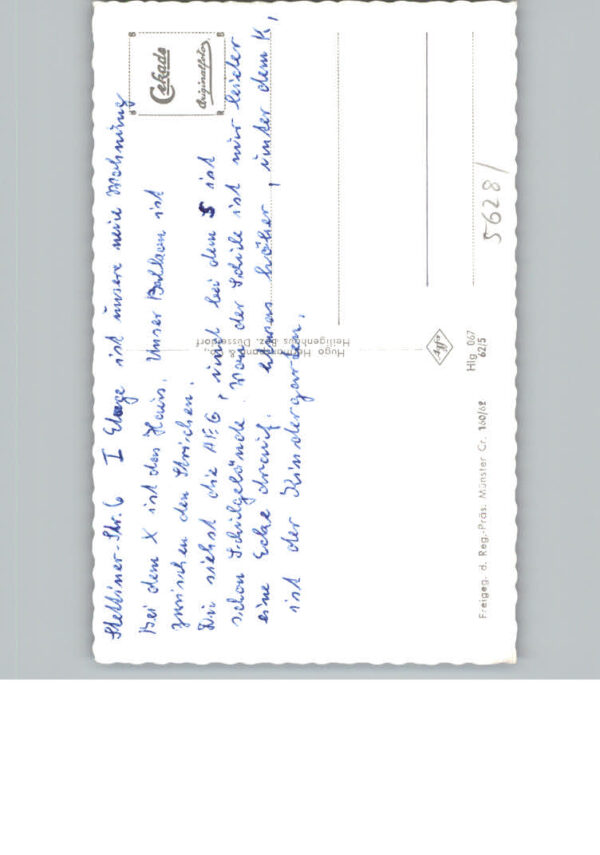 Stettiner-Str. 6 I Etage ist unsere neue Wohnung
Bei dem X ist das Haus. Unser Balkon ist
zwischen den Strichen.
Du siehst die AEG, und bei dem S ist
schon Schulgelände. Von der Schule ist nur leider
eine Ecke drauf. etwas höher, unter dem K,
ist der Kindergarten.
Cekade
Originalfoto
Heiligenhaus Bez. Düsseldorf
Agfa
Hlg 067
62/5
5628/
Freigeg. d. Reg.-Präs. Münster Cr. 160/62